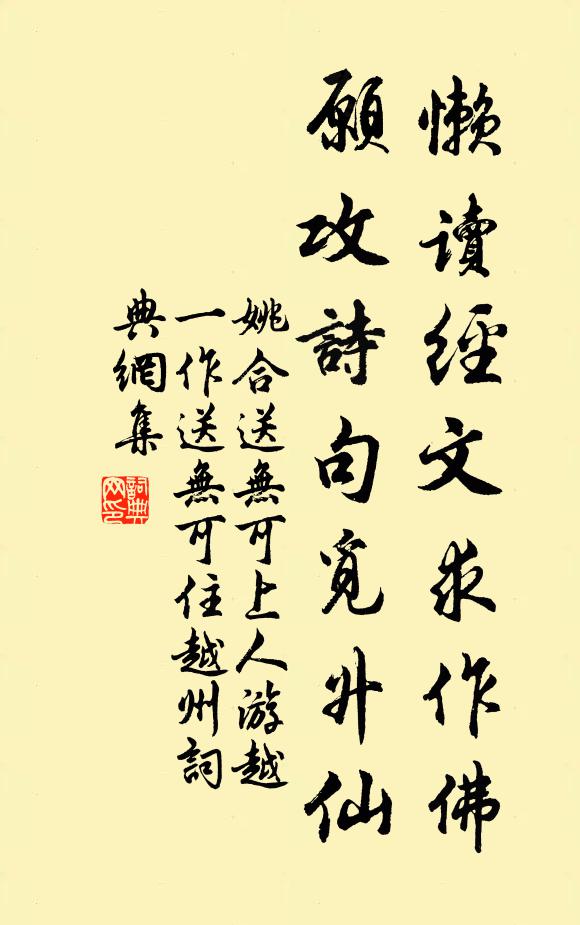 懶讀經文求作佛
願攻詩句覓升仙
姚合送無可上人游越
一作送無可住越州詞
典網集
詞典網印